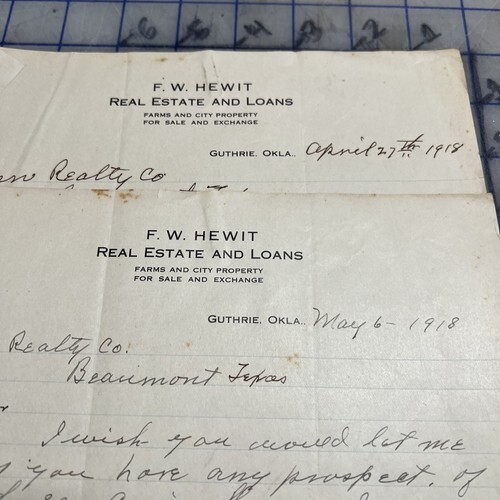 6 5 4 3 2 1
F. W. HEWIT
REAL ESTATE AND LOANS
FARMS AND CITY PROPERTY
FOR SALE AND EXCHANGE
GUTHRIE, OKLA., April 27th 1918
Realty Co
F. W. HEWIT
REAL ESTATE AND LOANS
FARMS AND CITY PROPERTY
FOR SALE AND EXCHANGE
GUTHRIE, OKLA., May 6 - 1918
Realty Co.
Beaumont Texas
I wish you would let me
you have any prospect. of